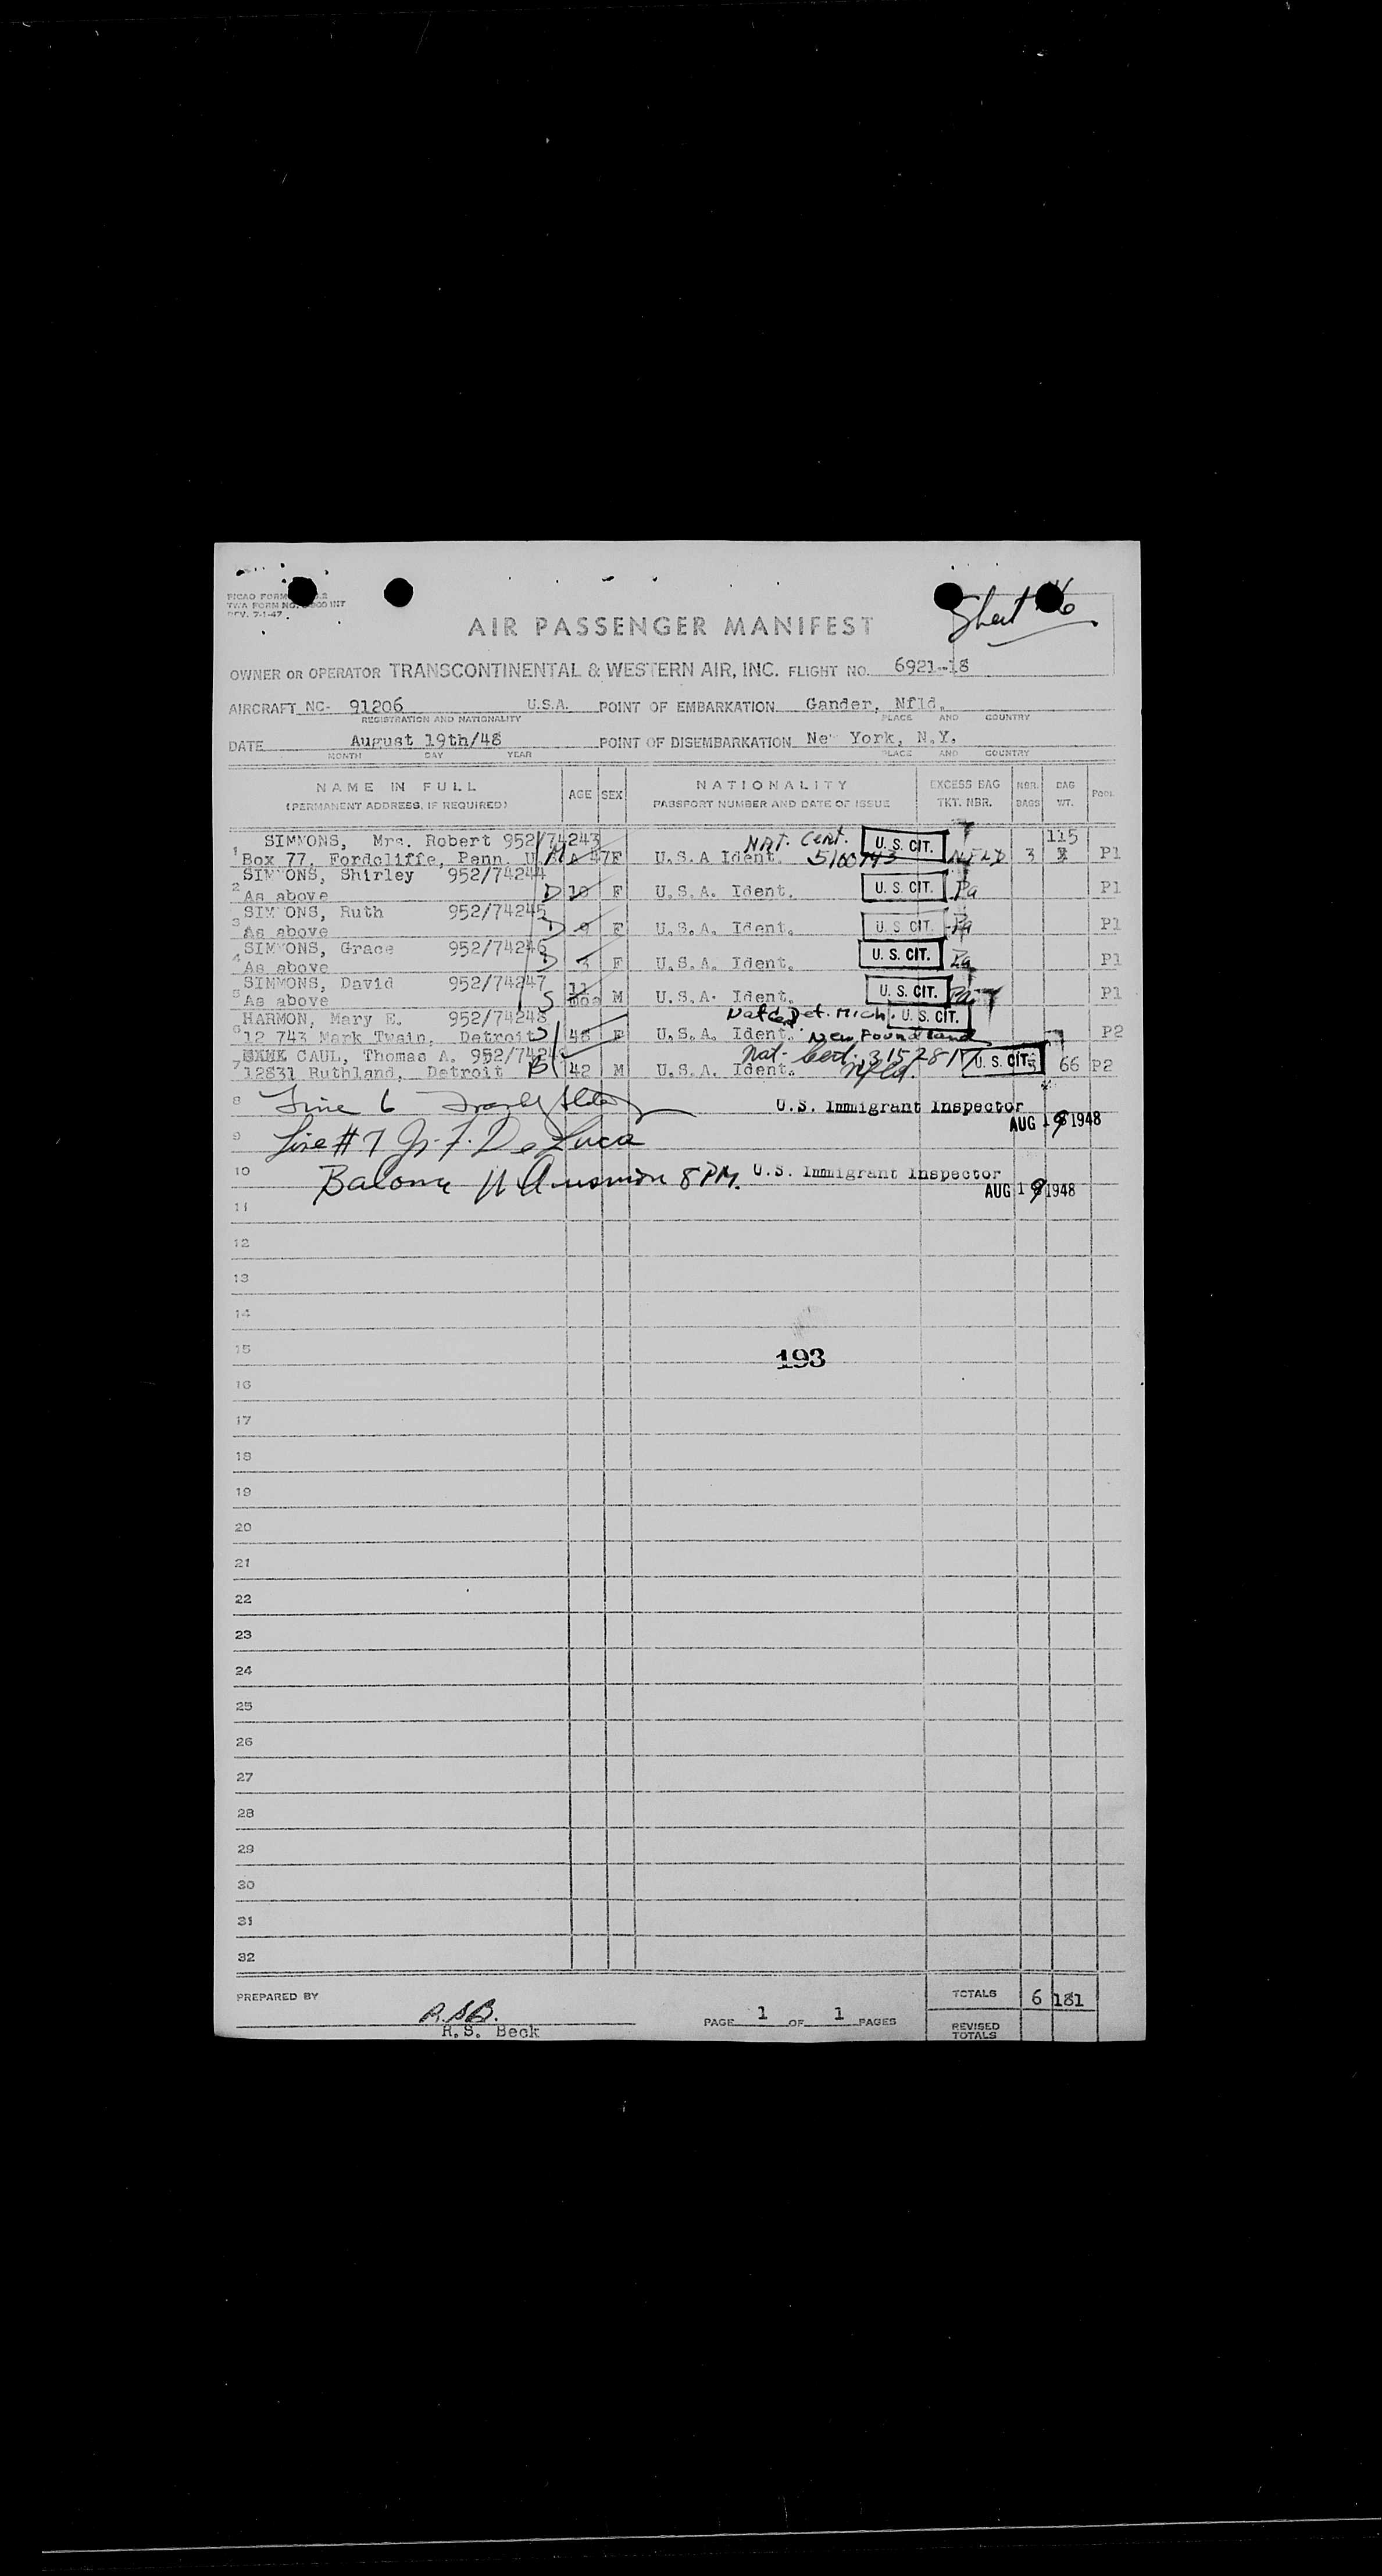 PICAO FORM
TWA FORM NO. INT
REV. 7-1-47
Sheet
AIR PASSENGER MANIFEST
OWNER OR OPERATOR TRANSCONTINENTAL & WESTERN AIR, INC. FLIGHT NO. 6921-18
AIRCRAFT NC- 91206 U.S.A. POINT OF EMBARKATION Gander, Nfld.
REGISTRATION AND NATIONALITY PLACE AND COUNTRY
DATE August 19th/48 POINT OF DISEMBARKATION Ne York, N.Y.
MONTH DAY YEAR PLACE AND COUNTRY
NAME IN FULL AGE SEX NATIONALITY EXCESS BAG NBR. BAG POOL
(PERMANENT ADDRESS, IF REQUIRED) PASSPORT NUMBER AND DATE OF ISSUE TKT. NBR. BAGS WT.
SIMMONS, Mrs. Robert 952/74243 Nat. Cert. U. S. CIT. 115
1 Box 77, Fordcliffe, Penn. 47 F U.S.A Ident. 5100743 NFLD 3 P1
SIMMONS, Shirley 952/74244
2 As above D 10 F U.S.A. Ident. U. S. CIT. Pa P1
SIMMONS, Ruth 952/74245
3 As above D 9 F U.S.A. Ident. U. S. CIT. Pa P1
SIMMONS, Grace 952/74246
4 As above D 3 F U.S.A. Ident. U. S. CIT. Pa P1
SIMMONS, David 952/74247 11
5 As above S mos M U.S.A. Ident. U. S. CIT. Pa P1
HARMON, Mary E. 952/74248 Natd Det. Mich. U. S. CIT.
6 12 743 Mark Twain, Detroit 48 F U.S.A. Ident. New Foundland P2
CAUL, Thomas A. 952/7424 Nat. Cert. 3152817 U. S. CIT.
7 12831 Ruthland, Detroit 42 M U.S.A. Ident. Nfld. 3 66 P2
8 Line 6 U.S. Immigrant Inspector
AUG 19 1948
9 Line #7 F. DeLuca
10 Balance 8 PM. U.S. Immigrant Inspector
AUG 19 1948
11
12
13
14
15
193
16
17
18
19
20
21
22
23
24
25
26
27
28
29
30
31
32
PREPARED BY R.S.B. TOTALS 6 181
R.S. Beck PAGE 1 OF 1 PAGES REVISED
TOTALS